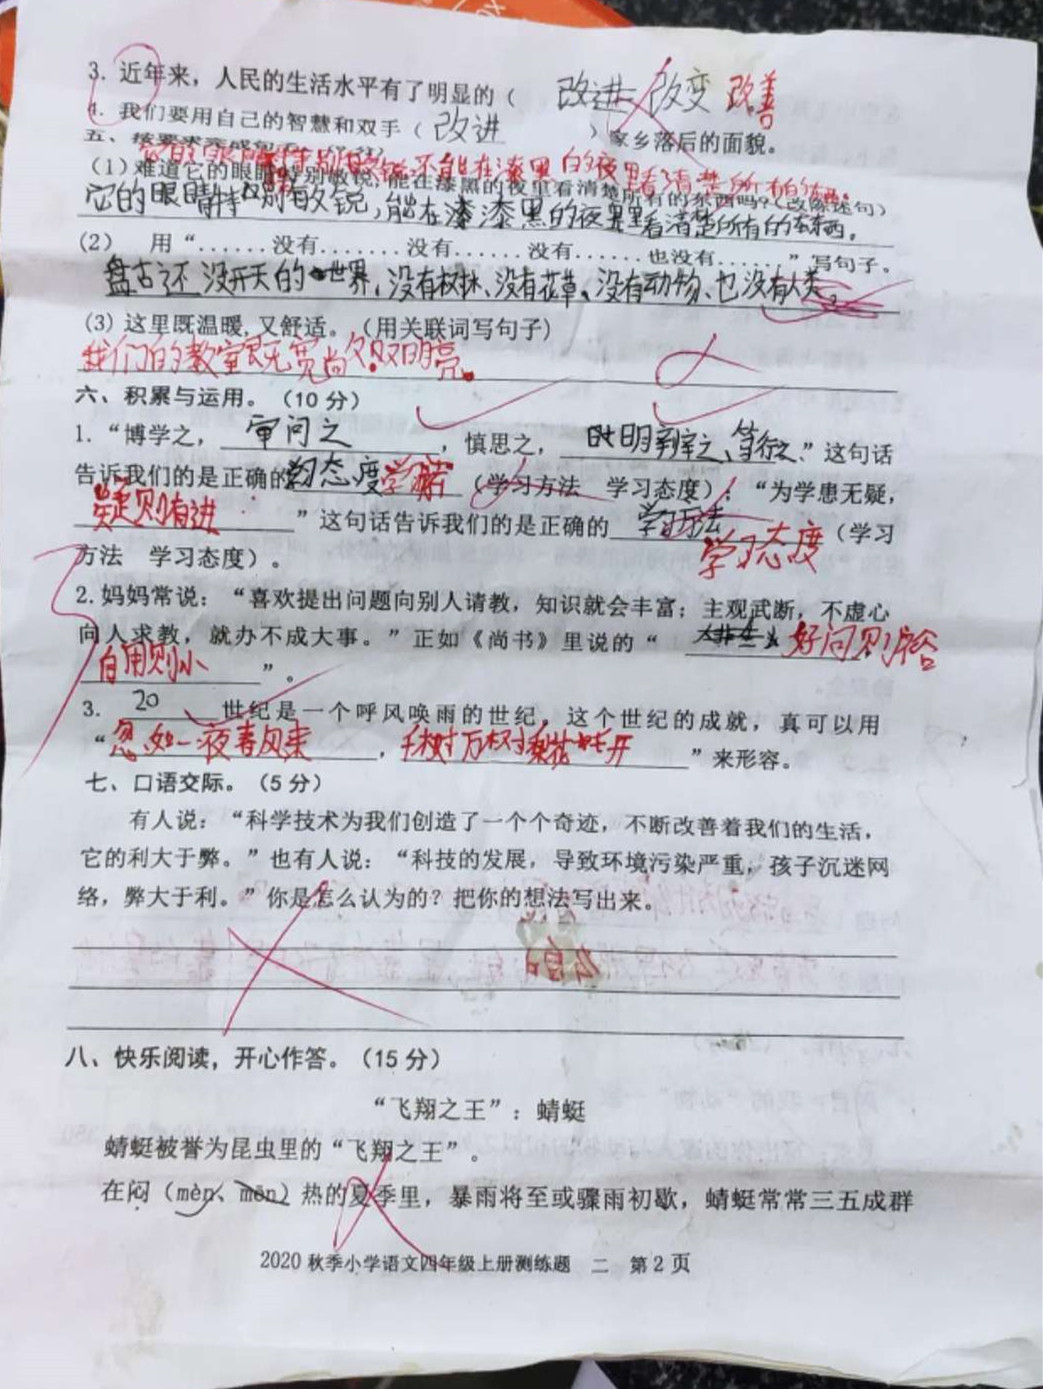 3. 近年来，人民的生活水平有了明显的（ 改进 改变 改善
4. 我们要用自己的智慧和双手（ 改进 ）家乡落后的面貌。
五、按要求完成句子。
(1) 难道它的眼睛特别敏锐，能在漆黑的夜里看清楚所有的东西吗？（改陈述句）
它的眼睛特别敏锐，能在漆漆黑的夜里看清楚所有的东西。
(2) 用“……没有……没有……没有……也没有……”写句子。
盘古还没开天的世界，没有树林、没有花草、没有动物、也没有人类。
(3) 这里既温暖，又舒适。（用关联词写句子）
我们的教室既宽尚又明亮。
六、积累与运用。（10 分）
1. “博学之， 审问之 ，慎思之， 明辨之、笃行之 ”这句话
告诉我们的是正确的 态度 学习 （学习方法 学习态度）；“为学患无疑，
疑则有进 ”这句话告诉我们的是正确的 学习方法 （学习
学习态度
方法 学习态度）。
2. 妈妈常说：“喜欢提出问题向别人请教，知识就会丰富；主观武断，不虚心
向人求教，就办不成大事。”正如《尚书》里说的“ 好问则裕
自用则小 ”。
3. 20 世纪是一个呼风唤雨的世纪，这个世纪的成就，真可以用
“忽如一夜春风来 ，千树万树梨花开 ”来形容。
七、口语交际。（5 分）
有人说：“科学技术为我们创造了一个个奇迹，不断改善着我们的生活，
它的利大于弊。”也有人说：“科技的发展，导致环境污染严重，孩子沉迷网
络，弊大于利。”你是怎么认为的？把你的想法写出来。
八、快乐阅读，开心作答。（15 分）
“飞翔之王”：蜻蜓
蜻蜓被誉为昆虫里的“飞翔之王”。
在闷（mèn、mēn）热的夏季里，暴雨将至或骤雨初歇，蜻蜓常常三五成群
2020 秋季小学语文四年级上册测练题 二 第 2 页